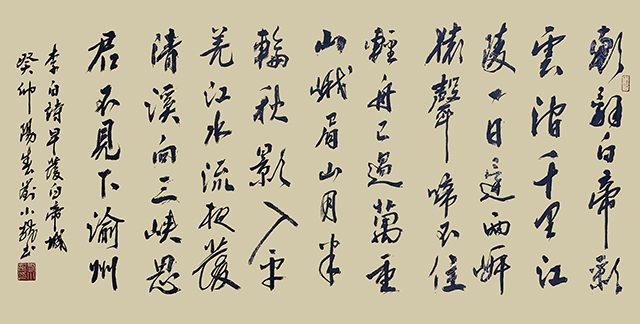 朝辭白帝彩
雲間千里江
陵一日還两岸
猿聲啼不住
輕舟已過萬重
山峨眉山月半
輪秋影入平
羌江水流夜發
清溪向三峡思
君不見下渝州
李白詩早發白帝城
癸卯陽春劉小书